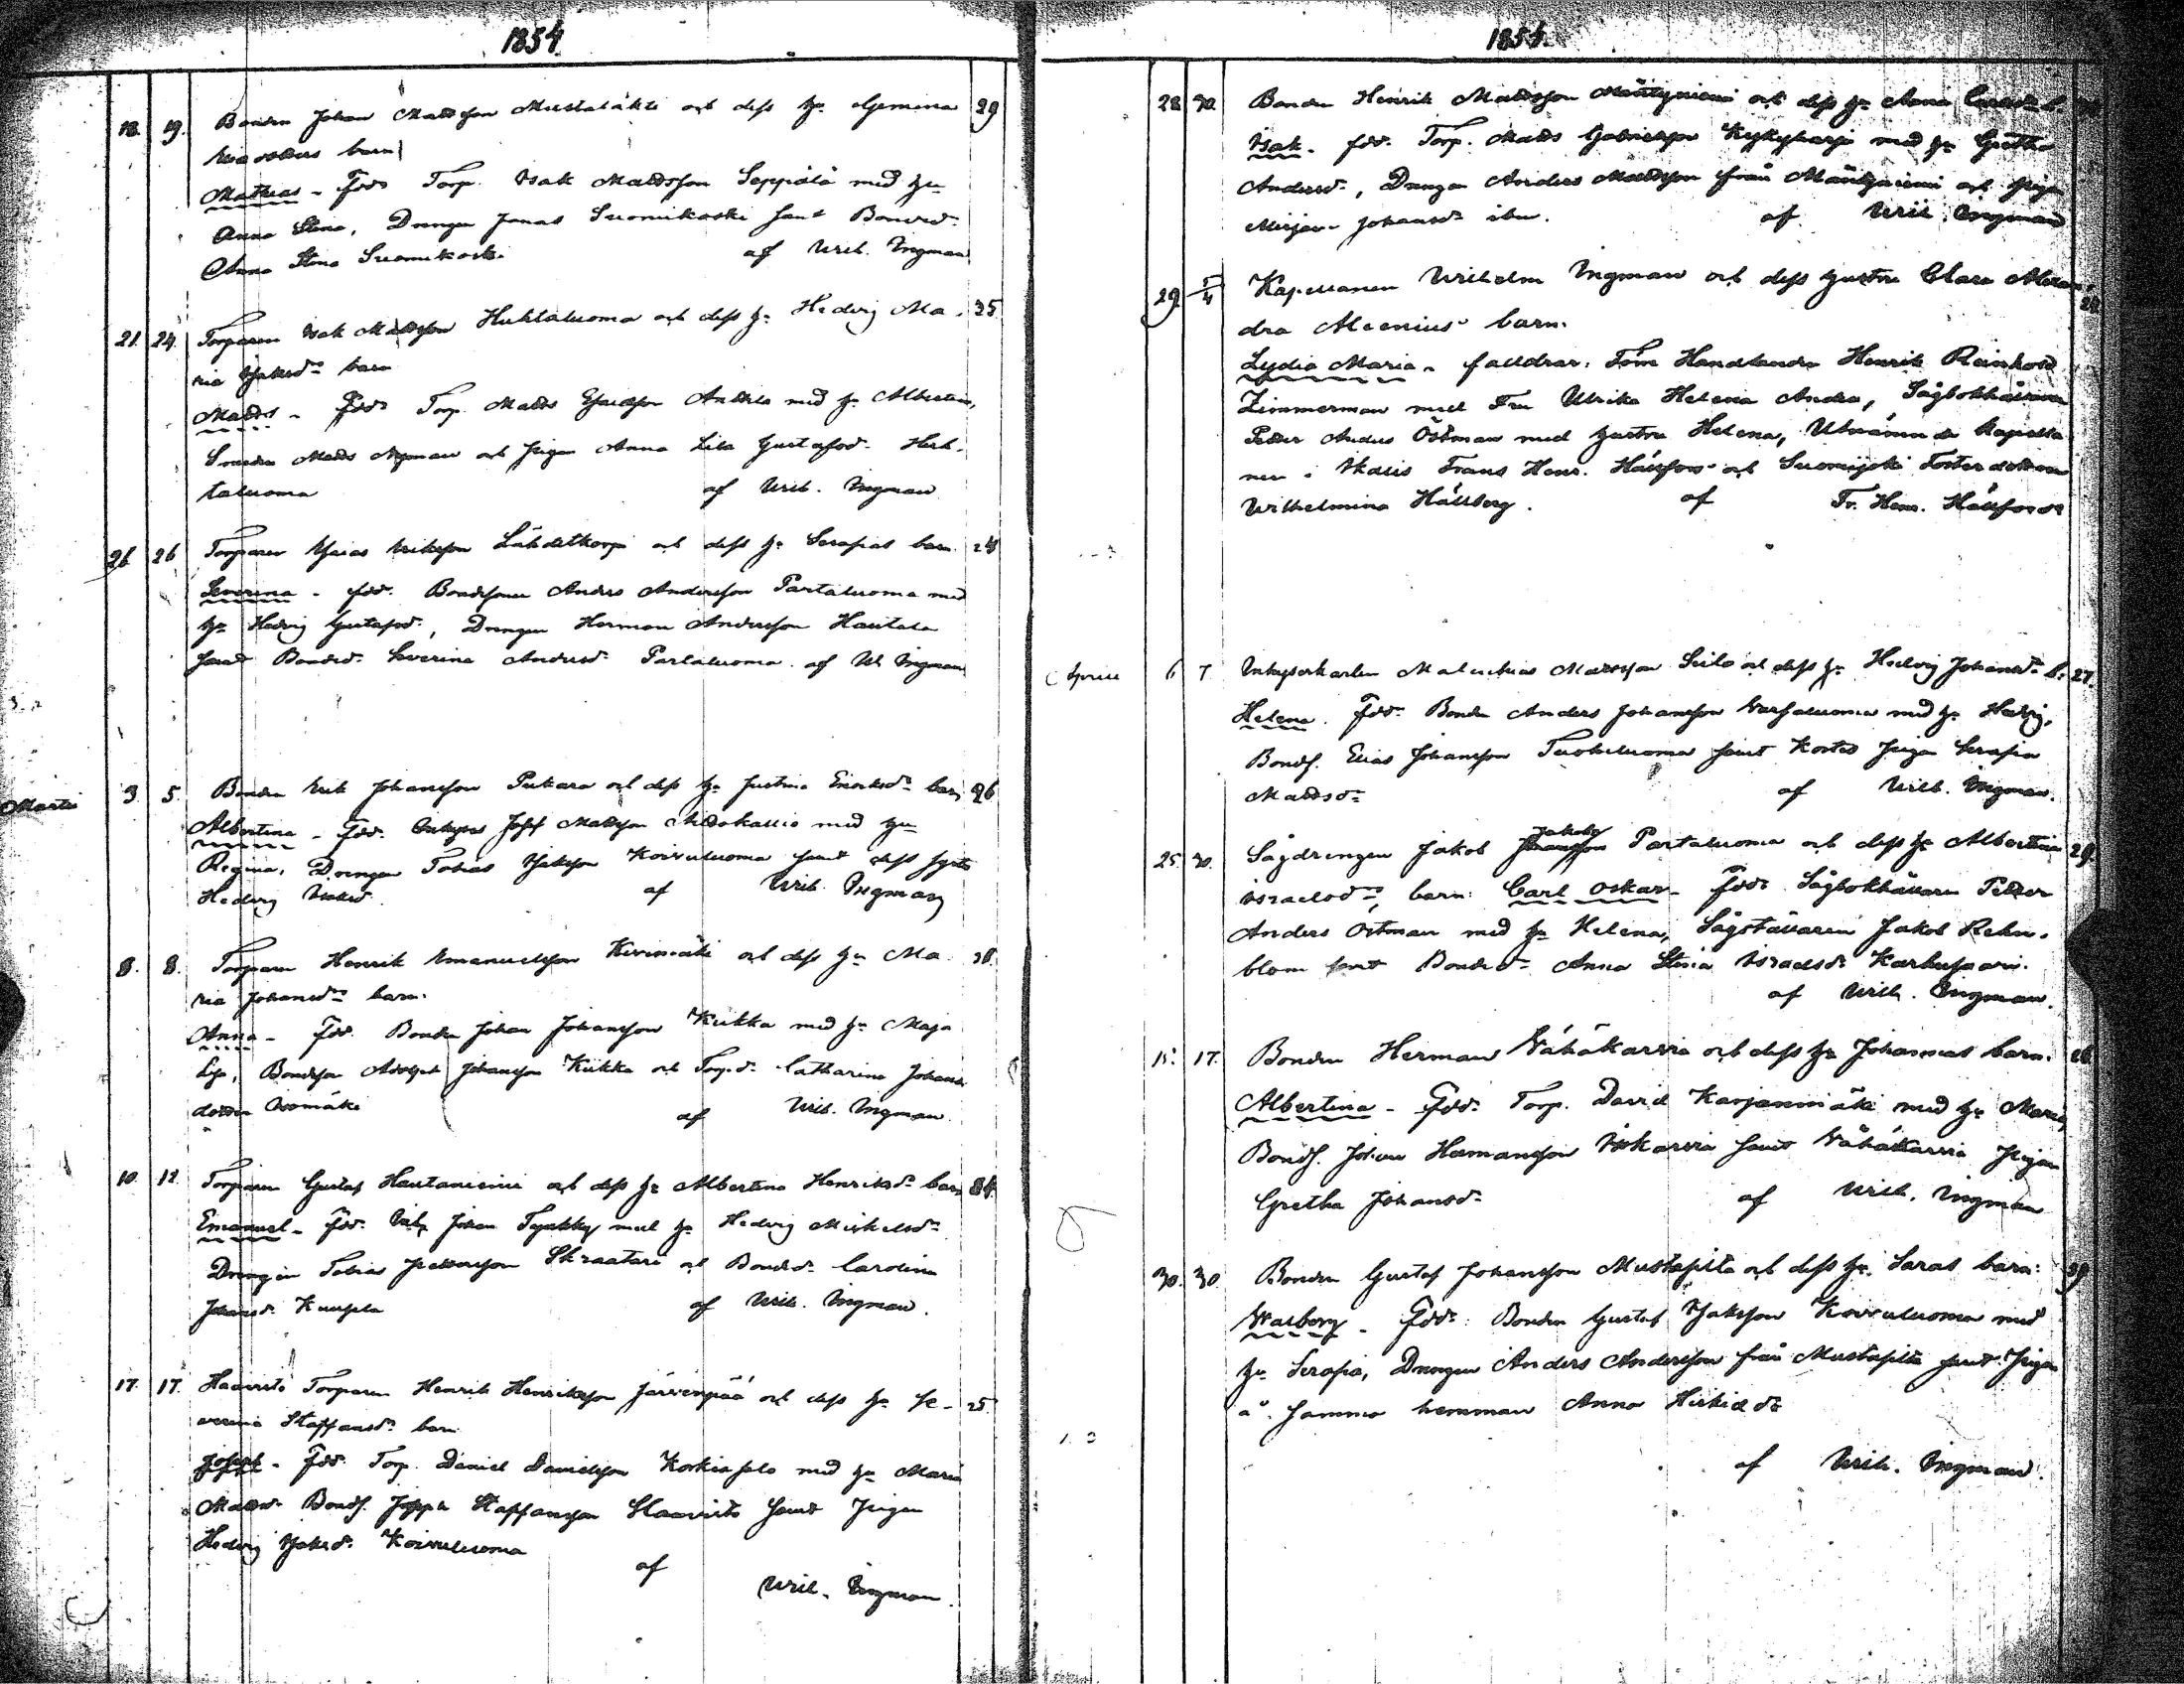 1854.
18. 19. Bonden Johan Mattsson Mustalähti och dess h: Gemima 29
barn
Mathias - Fadd: Torp. Isak Mattsson Seppälä med h:u
Anna Stina, Drengen Jonas Suomikoski samt Bonded:
Anna Stina Suomikoski. af Wilh. Ingman
21. 24. Torparen Isak Mattsson Huhtaluoma och dess h: Hedvig Ma- 35.
ria Isaksd:r barn
Matts - Fadd: Torp. Matts Esaiasson Anttila med h: Albertina,
Smeden Matts Nyman och Pigan Anna Lisa Gustafsd: Huh-
taluoma af Wilh. Ingman
26 26 Torparen Esaias Eriksson Lähdetkorpi och dess h: Serafias barn. 24
Severina - fdd: Bondsonen Anders Andersson Partaluoma med
h:u Hedvig Gustafsd:, Drengen Herman Andersson Hautala
samt Bonded: Severina Andersd: Partaluoma. af W. Ingman
Martii 3. 5. Bonden Erik Johansson Pukara och dess h:u Justina Enoksd:r barn 26
Albertina - Fdd: Josef Mattsson med h:u
Regina, Drengen Tobias Isaksson Koivuluoma samt dess syster
Hedvig Isaksd: af Wilh. Ingman
8. 8. Torparen Henrik Emanuelsson Kivimäki och dess h:u Ma- 38.
ria Johansd:r barn.
Anna - Fdd: Bonden Johan Johansson Kukka med h:u Maja
Lisa, Bondeson Adolph Johansson Kukka och Torp.d: Catharina Johans-
dotter af Wilh. Ingman.
10. 12. Torparen Gustaf Hautaniemi och dess h:u Albertina Henriksd:r barn 34.
Emanuel - Fdd: Johan Tyykky med h:u Hedvig Mickelsd:r
Drengen Tobias Skraatari och Bonded: Carolina
Johansd: af Wilh. Ingman.
17. 17. Haavisto Torparen Henrik Henriksson Järvenpää och dess h:u Se- 25.
verina Staffansd:r barn
Joseph - Fdd: Torp. Daniel Davidsson Korkiasalo med h:u Maria
Mattsd: Bonds. Joseph Staffansson Haavisto samt Pigan
Hedvig Isaksd: Koivuluoma
af
Wilh. Ingman.
1854.
28 30. Bonden Henrik Mattsson Mäntyniemi och dess h:u Anna b.
Isak. fdd: Torp. Matts Gabrielsson Kyykyharju med h:u Gretha
Andersd:, Drengen Anders Mattsson från Mäntyniemi och Pigan
Mirjam Johansd:r ibm. af Wilh. Ingman
29 5/4 Kapellanen Wilhelm Ingman och dess hustru Clara Alexan- 28.
dra Alcenius' barn.
Lydia Maria - faddrar: Förre Handlanden Henrik Reinhold
Zimmerman med Fru Ulrika Helena Andra, Sågbokhållaren
Petter Anders Östman med hustru Helena, Utnämnde Kapella-
nen i Ikalis Frans Henr. Hällfors och Suomijoki Fosterdottern
Wilhelmina Hällberg. af Fr. Henr. Hällfors
Aprill 6 7 Inhysekarlen Malachias Mattsson Seilo och dess h:u Hedvig Johansd:r b. 27.
Helena. Fdd: Bonden Anders Johansson med h:u Hedvig,
Bonds. Elias Johansson Tuokoluoma samt Pigan Serafia
Mattsd:r af Wilh. Ingman.
25. 30. Sågdrengen Jakob Jakobsson Partaluoma och dess h:u Albertina 29.
Israelsd:r, barn: Carl Oskar - Fdd: Sågbokhållaren Petter
Anders Östman med h:u Helena, Sågställaren Jakob Rehn-
blom samt Bonded: Anna Stina Israelsd: Karhusaari.
af Wilh. Ingman.
15. 17. Bonden Herman Vähäkarvia och dess h:u Johannas barn. 26.
Albertina - Fdd: Torp. David Karjanmäki med h:u Maria,
Bonds. Johan Hermansson Isokarvia samt Vähäkarvia Pigan
Gretha Johansd:r af Wilh. Ingman
30. 30 Bonden Gustaf Johansson Mustapilta och dess h:u Saras barn: 39
Walborg - Fdd: Bonden Gustaf Isaksson Koivuluoma med
h:u Serafia, Drengen Anders Andersson från Mustapilta samt Pigan
å samma hemman Anna
af Wilh. Ingman.